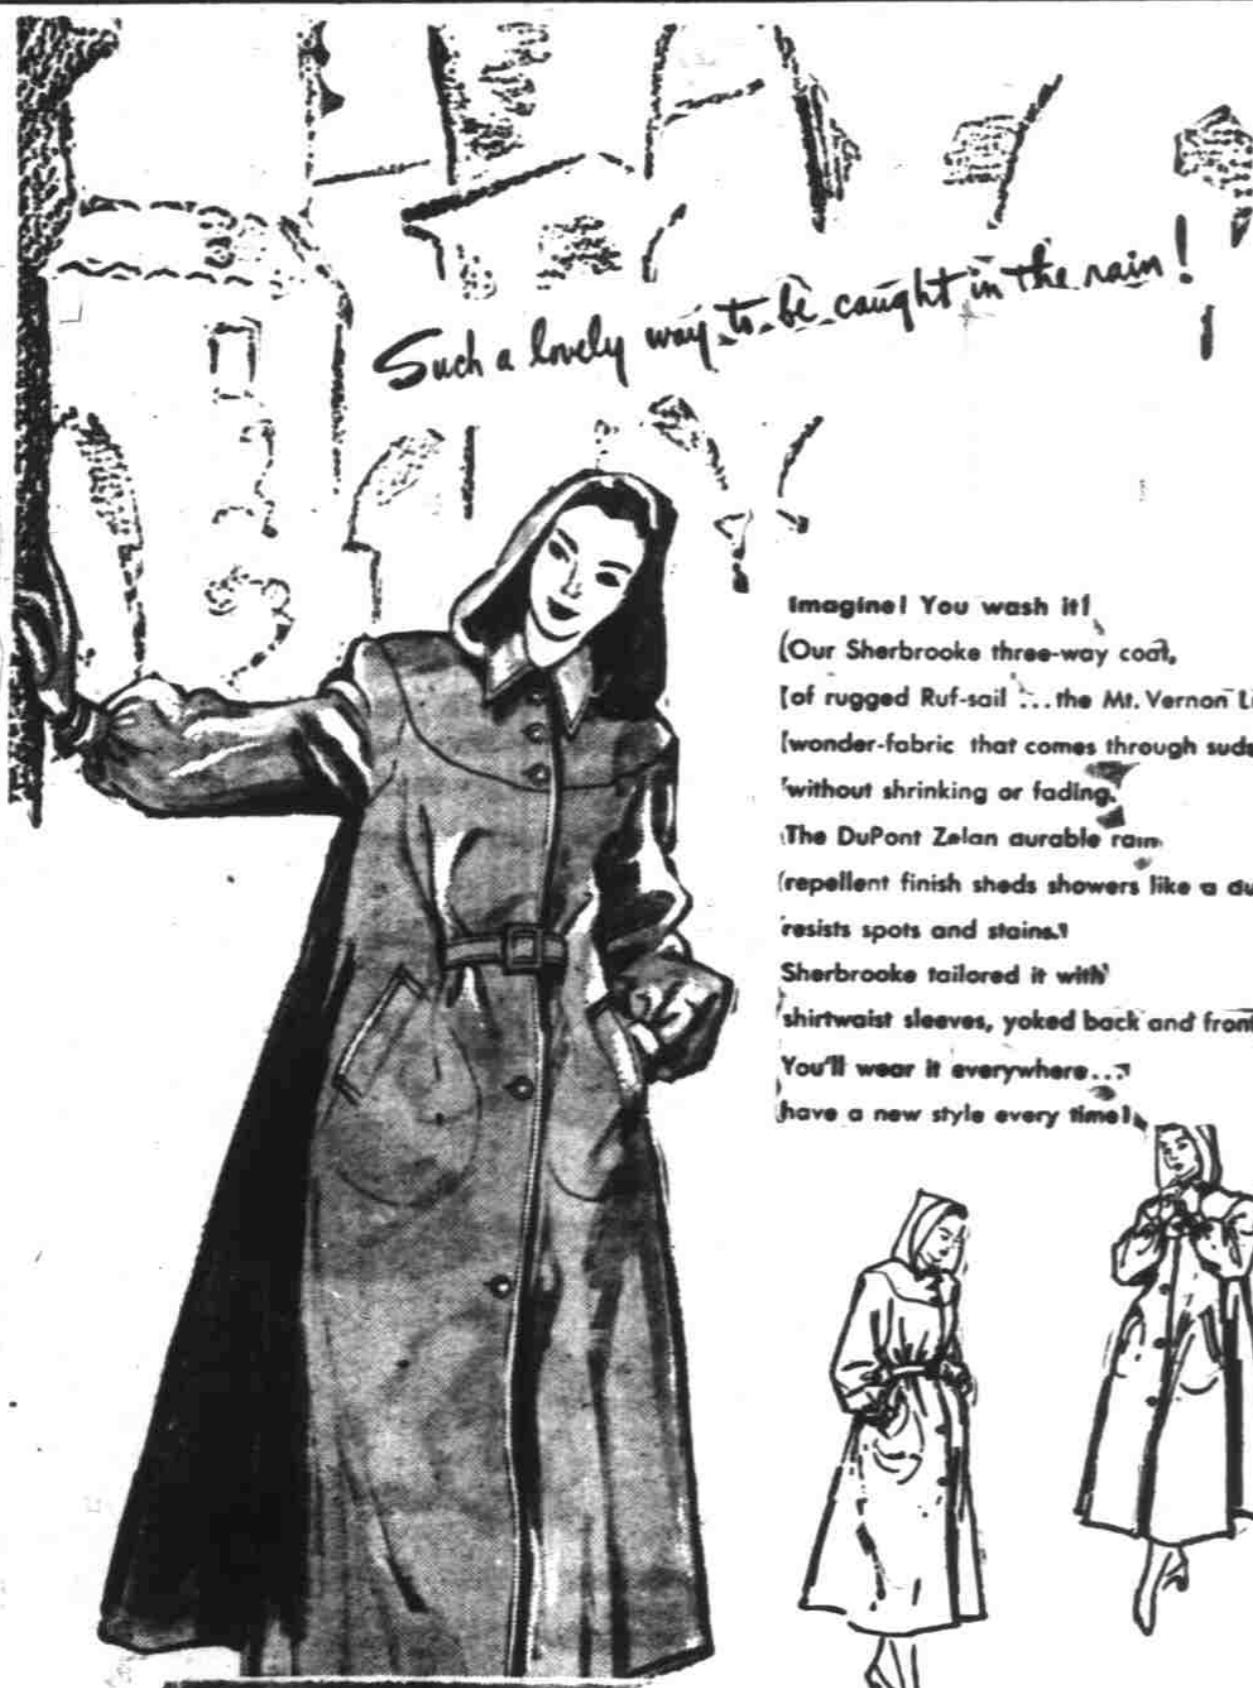 Such a lovely way to be caught in the rain!
Imagine! You wash it!
Our Sherbrooke three-way coat,
of rugged Ruf-sail ... the Mt. Vernon
wonder-fabric that comes through suds
without shrinking or fading.
The DuPont Zelan durable rain
repellent finish sheds showers like a
resists spots and stains.
Sherbrooke tailored it with
shirtwaist sleeves, yoked back and front
You'll wear it everywhere...
have a new style every time!